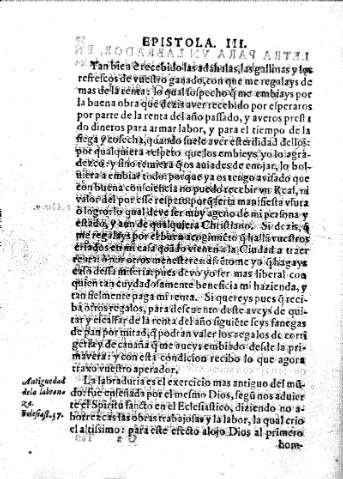 EPISTOLA. III.
Tan bien è recebido las adahalas, las gallinas y los
refrescos de vuestro ganado, con que me regalays de
mas de la renta: lo qual sospecho q̃ me embiays por
la buena obra que dezis aver recebido por esperaros
por parte de la renta del año passado, y averos presta
do dineros para armar labor, y para el tiempo de la
siega y cosecha, quando suele aver esterilidad dellos:
por qualquiera respeto que los embieys yo lo agra-
dezco: y sino tuviera q̃ os aviades de enojar, lo bol-
viera a embiar todo: porque ya os tengo avisado que
con buena consciencia no puedo recebir vn Real, ni
valor del por esse respeto, porque seria manifiesta vsura
ò logro: lo qual deve ser muy ageno de mi persona y
estado, y aun de qualquiera Christiano. Si dezis, q̃
me regalays por el buen acogimiẽto q̃ hallã vuestros
criados en mi casa quãdo vienen a la Ciudad a traer
renta ò a otros menesteres, ofrezcome yo q̃ hagays
cessa dessa miseria, pues devo yo ser mas liberal con
quien tan cuydadosamente beneficia mi hazienda, y
tan fielmente paga mi renta. Si quereys pues q̃ reci-
ba otros regalos, para descuento deste aveys de qui-
tar y escalfar de la renta del año siguiẽte seys fanegas
de pan por mitad, q̃ podran valer los regalos de corri
gerĩa y de canaña q̃ me aveys embiado desde la pri-
mavera: y con esta condicion recibo lo que agora
traxo vuestro aperador.
Antiguedad
de la labrança.
Eclesiast. 37.
La labraduria es el exercicio mas antiguo del mũ-
do: fue enseñada por el mesmo Dios, segũ nos advier
te el Spiritu sancto en el Eclesiastico, diziendo no a-
borrezcas las obras trabajosas y la labor, la qual criò
el altissimo: para este efecto alojo Dios al primero
G 2
hom-